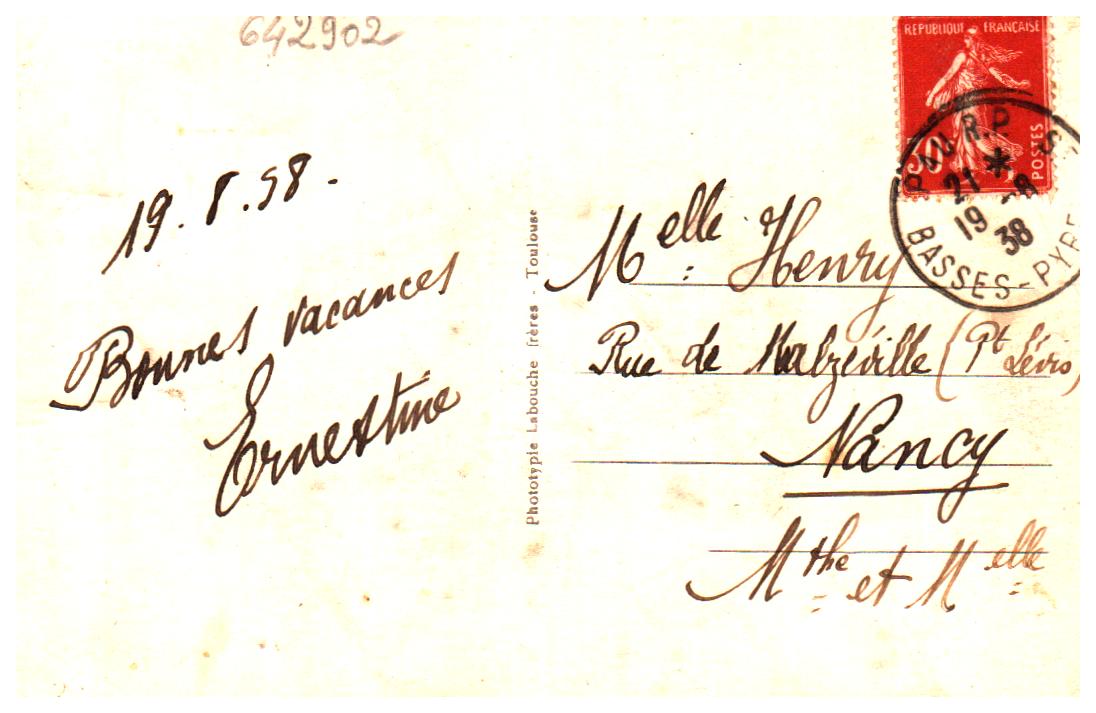 642902
19.8.38.
Bonnes vacances
Ernestine
Phototypie Labouche frères - Toulouse
REPUBLIQUE FRANÇAISE
30
POSTES
PAU R.P.
21 * -8
19 38
BASSES-PYRE
Melle Henry
Rue de Malzéville (Pt Lévis)
Nancy
Mthe et Melle